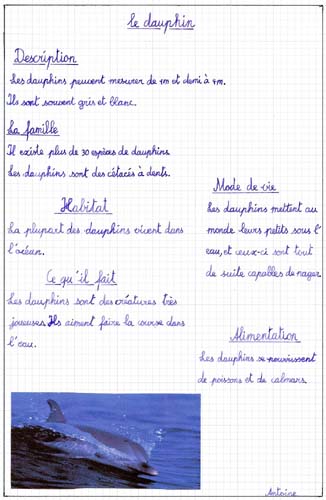 le dauphin
Description
Les dauphins peuvent mesurer de 1m et demi à 4m.
Ils sont souvent gris et blanc.
La famille
Il existe plus de 30 espèces de dauphins.
Les dauphins sont des cétacés à dents.
Habitat
La plupart des dauphins vivent dans
l'océan.
Ce qu'il fait
Les dauphins sont des créatures très
joueuses. Ils aiment faire la course dans
l'eau.
Mode de vie
Les dauphins mettent au
monde leurs petits sous l'
eau, et ceux-ci sont tout
de suite capables de nager.
Alimentation
Les dauphins se nourrissent
de poissons et de calmars.
Antoine